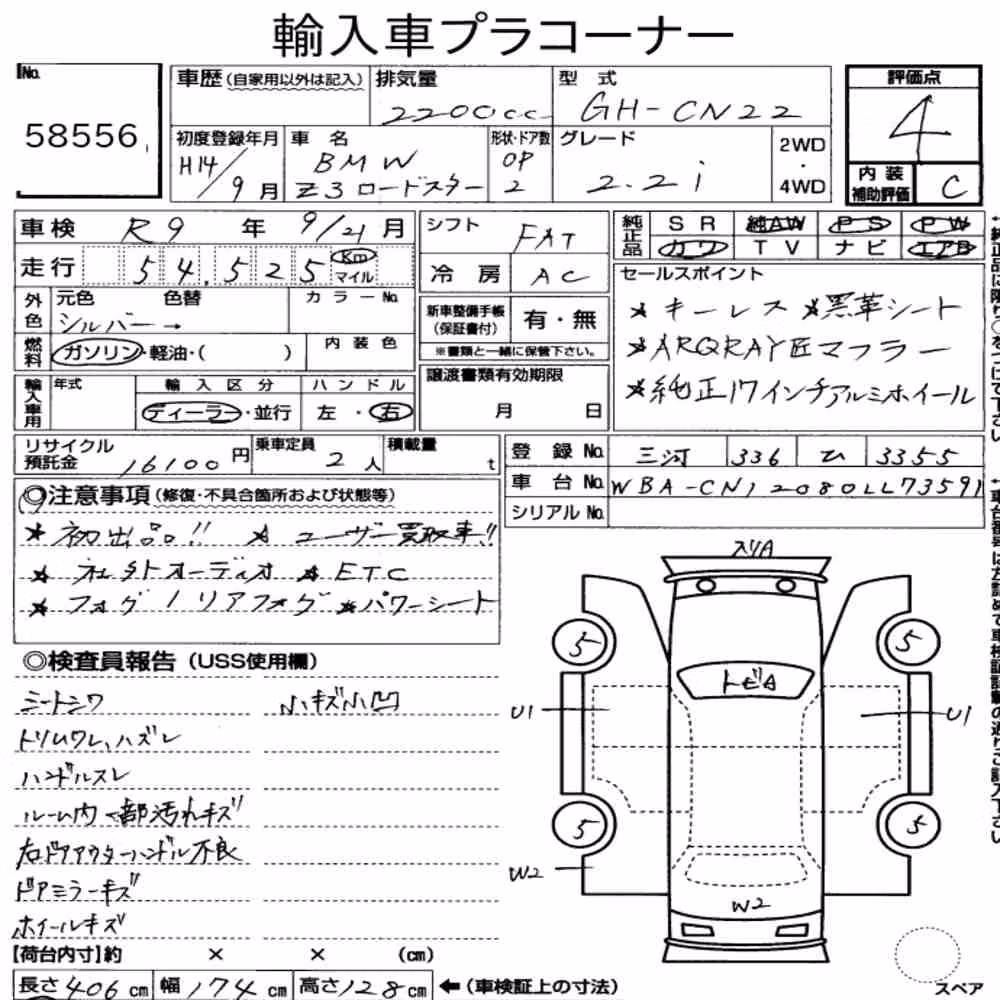 輸入車プラコーナー
No.
58556
車歴 (自家用以外は記入)
排気量
2200cc
型 式
GH-CN22
評価点
4
内装補助評価
C
初度登録年月
H14/9月
車 名
BMW
Z3ロードスター
形状・ドア数
OP
2
グレード
2.2i
2WD
・
4WD
車検 R9 年 9/21 月
走行 54,525 Km マイル
シフト FAT
冷 房 AC
純正品
SR 純AW PS PW
カワ TV ナビ エアB
外色
元色 色替
シルバー→
カラーNo.
新車整備手帳(保証書付) 有・無
※書類と一緒に保管下さい。
燃料
ガソリン・軽油・( )
内装色
セールスポイント
★キーレス ★黒革シート
★ARQRAY匠マフラー
★純正17インチアルミホイール
輸入車用
年式
輸入区分
ディーラー・並行
ハンドル
左・右
譲渡書類有効期限
月 日
リサイクル預託金 16100円
乗車定員 2人
積載量 t
登録No. 三河 336 ひ 3355
車台No. WBA-CN12080LL73591
シリアルNo.
◎注意事項(修復・不具合箇所および状態等)
★初出品!! ★ユーザー買取車!!
★社外オーディオ ★ETC
★フォグ/リアフォグ ★パワーシート
◎検査員報告(USS使用欄)
シートシワ 小キズ小凹
トリムワレ、ハズレ
ハンドルスレ
ルーム内一部汚れキズ
右ドアアウターハンドル不良
ドアミラーキズ
ホイールキズ
【荷台内寸】約 × × (cm)
長さ406cm 幅174cm 高さ128cm ←(車検証上の寸法)
スリA
5
5
トビA
U1
U1
5
5
W2
W2
スペア